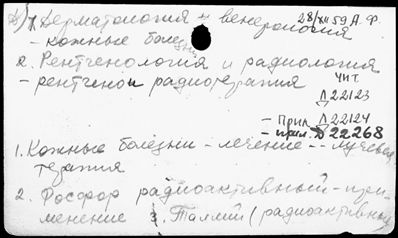 1. Дерматология и венерология 28/XII 59 А. Ф.
- кожные болезни
2. Рентгенология и радиология
- рентгено и радиотерапия чит.
Д 22123
- Прик. Д 22124
- прил. Д 22268
1. Кожные болезни - лечение -- лучевая
терапия
2. Фосфор радиоактивный - при-
менение 3. Таллий (радиоактивный